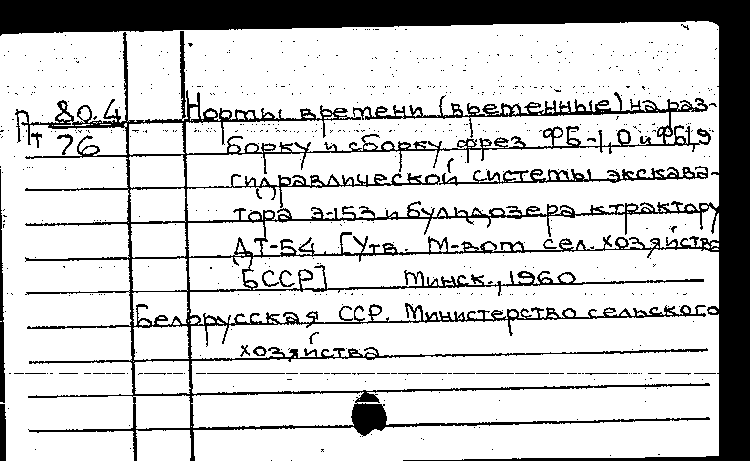 Пт 80.4
76
Нормы времени (временные) на раз-
борку и сборку фрез ФБ-1,0 и ФБ1,9
гидравлической системы экскава-
тора Э-153 и бульдозера к трактору
ДТ-54. [Утв. М-вом сел. хозяйства
БССР] Минск., 1960
Белорусская ССР. Министерство сельского
хозяйства